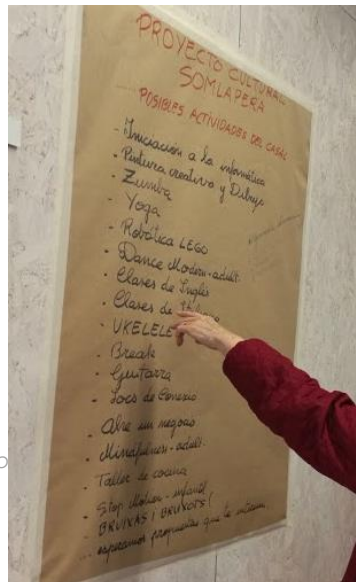 PROYECTO CULTURAL
SOMLAPERA
POSIBLES ACTIVIDADES DEL CASAL
- Iniciación a la informática
- Pintura creativa y Dibujo
- Zumba
- Yoga
- Robótica LEGO
- Dance Modern-adult.
- Clases de Inglés
- Clases de
- UKELELE
- Break
- Guitarra
- Jocs de Conexió
- Abre un negocio
- Mindfulness-adult.
- Taller de cocina
- Stop Motion-infantil
- BRUIXAS I BRUIXOTS!
... esperamos propuestas que te interesen